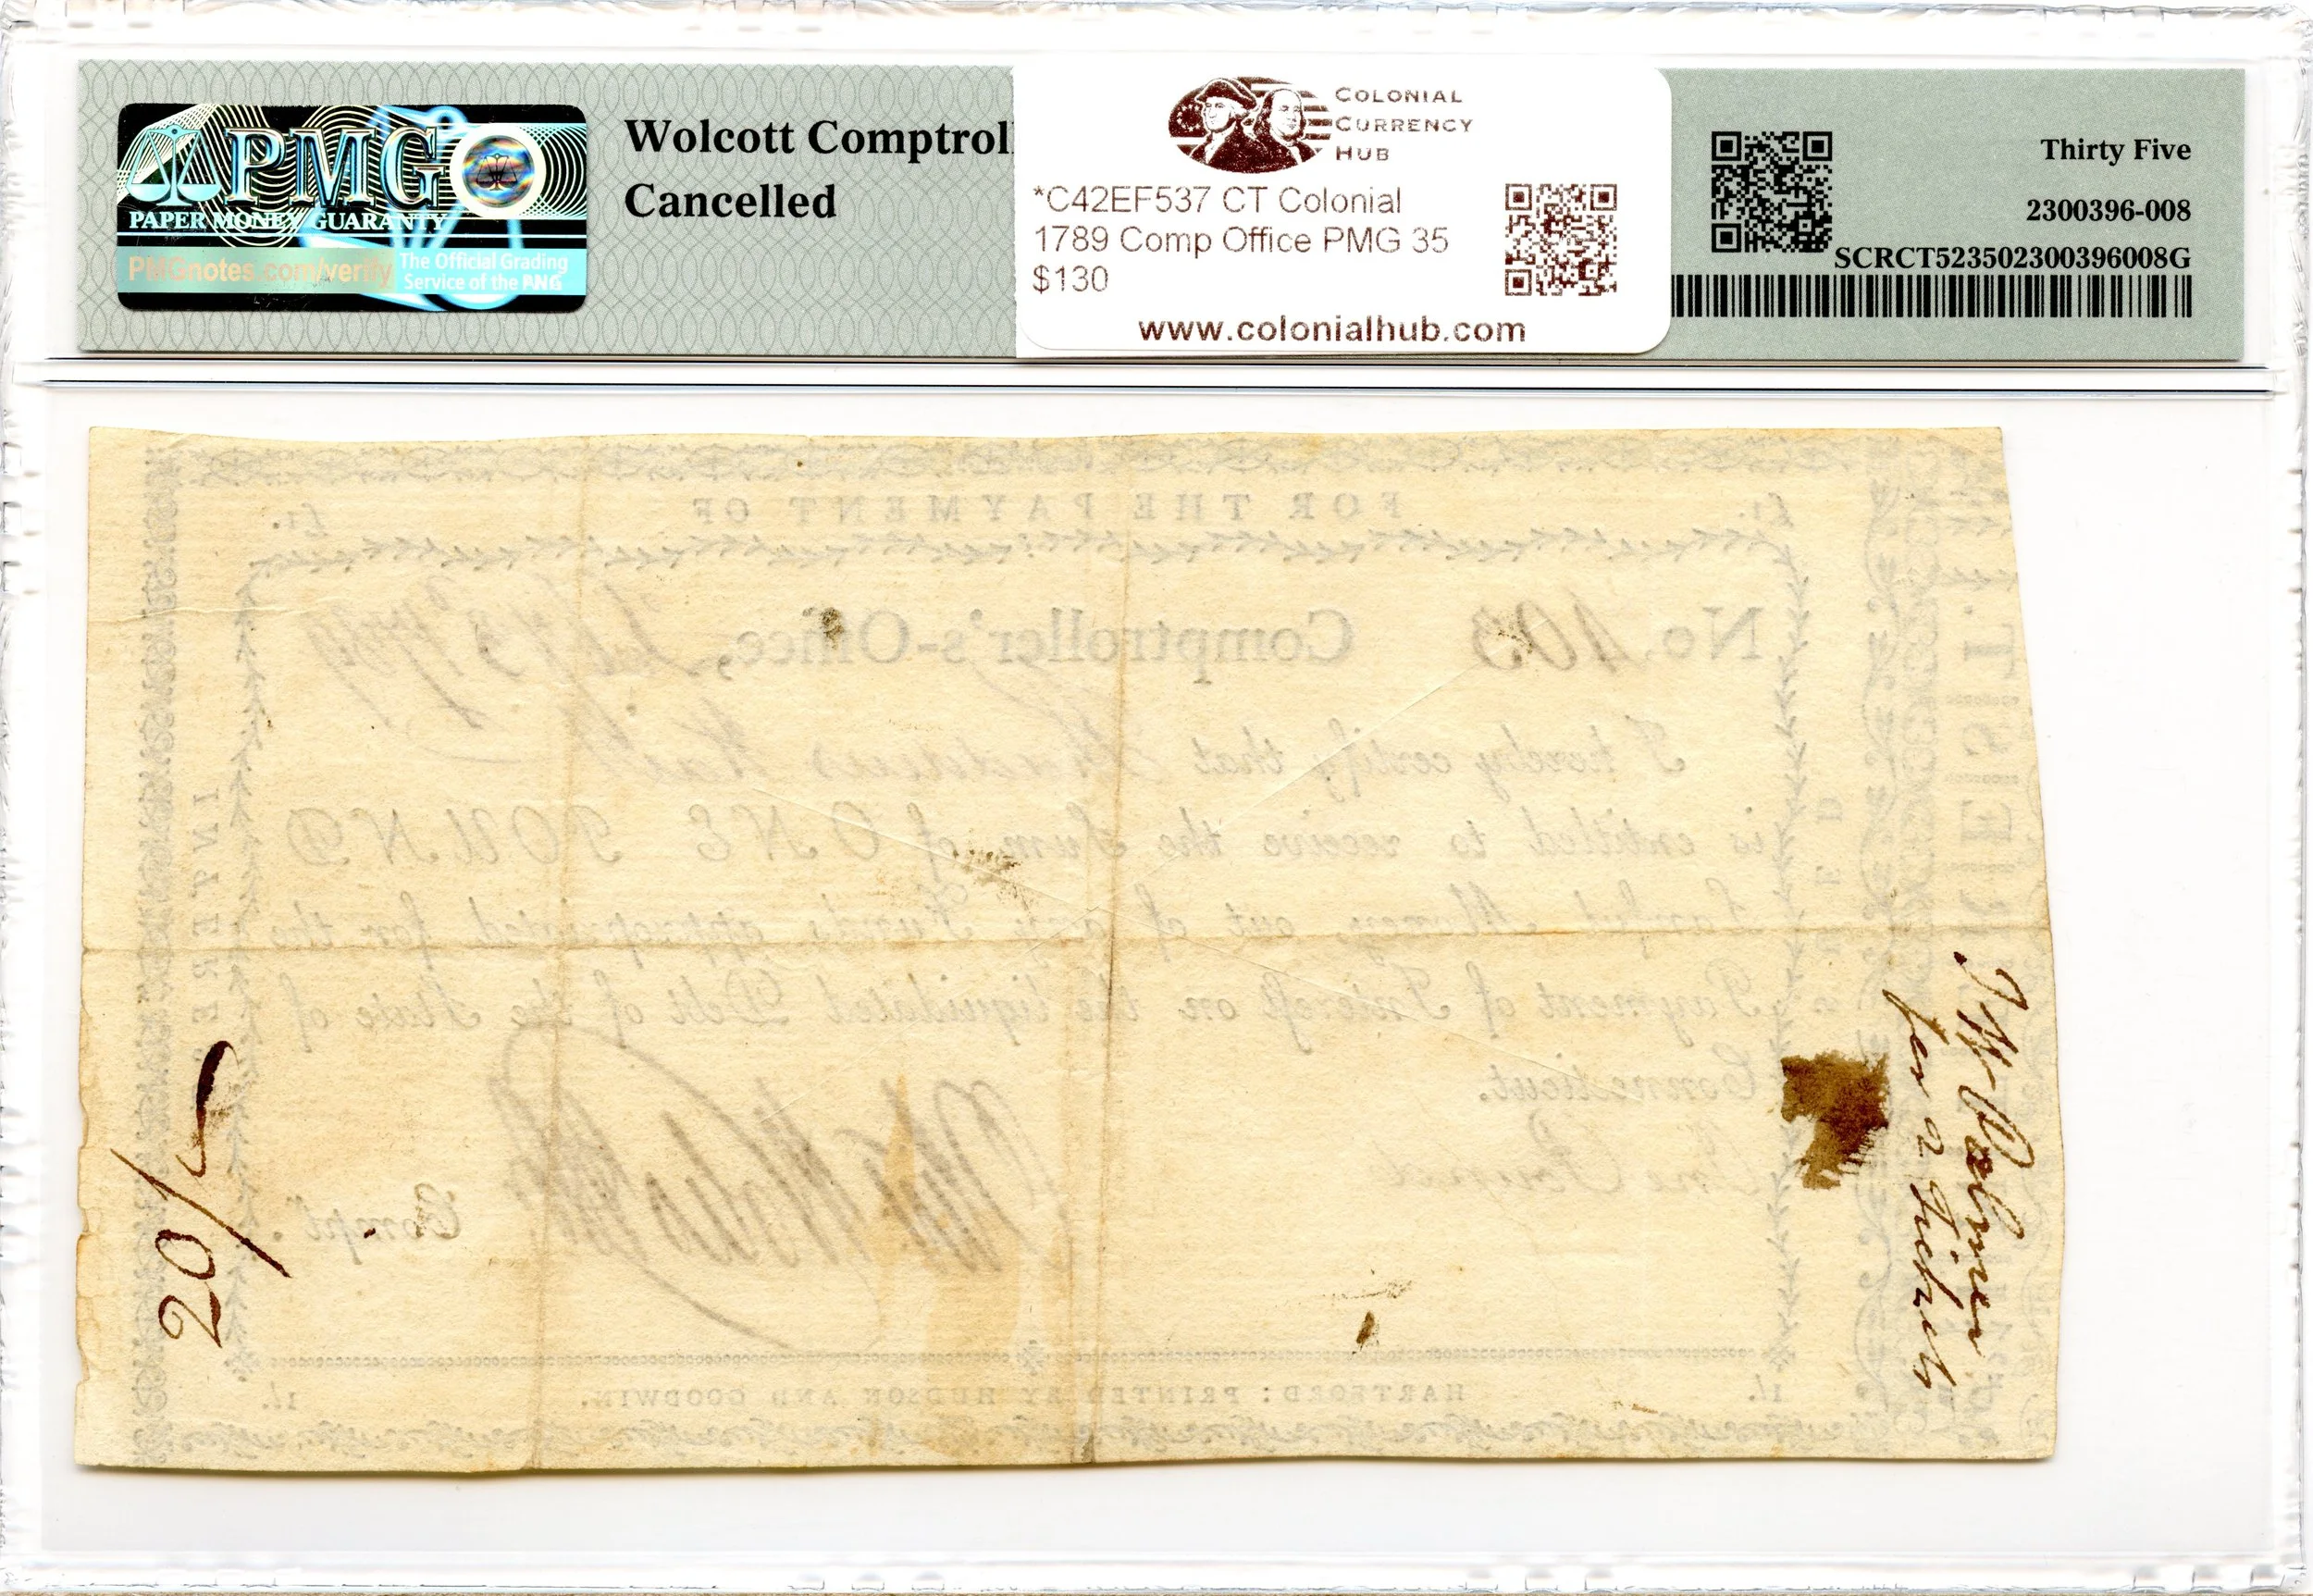 PMG
PAPER MONEY GUARANTY
PMGnotes.com/verify
The Official Grading
Service of the PNG
Wolcott Comptrol
Cancelled
COLONIAL
CURRENCY
HUB
*C42EF537 CT Colonial
1789 Comp Office PMG 35
$130
www.colonialhub.com
Thirty Five
2300396-008
SCRCT523502300396008G
FOR THE PAYMENT OF
£1. £1.
No. 403 Comptroller's-Office, 1789
I hereby certify that
is entitled to receive the Sum of ONE POUND
Lawful Money, out of any Funds appropriated for the
Payment of Interest on the liquidated Debt of the State of
Connecticut.
One Pound
Compt.
HARTFORD: PRINTED BY HUDSON AND GOODWIN.
1/. 1/.
INTEREST
20/
for 2 Tickets